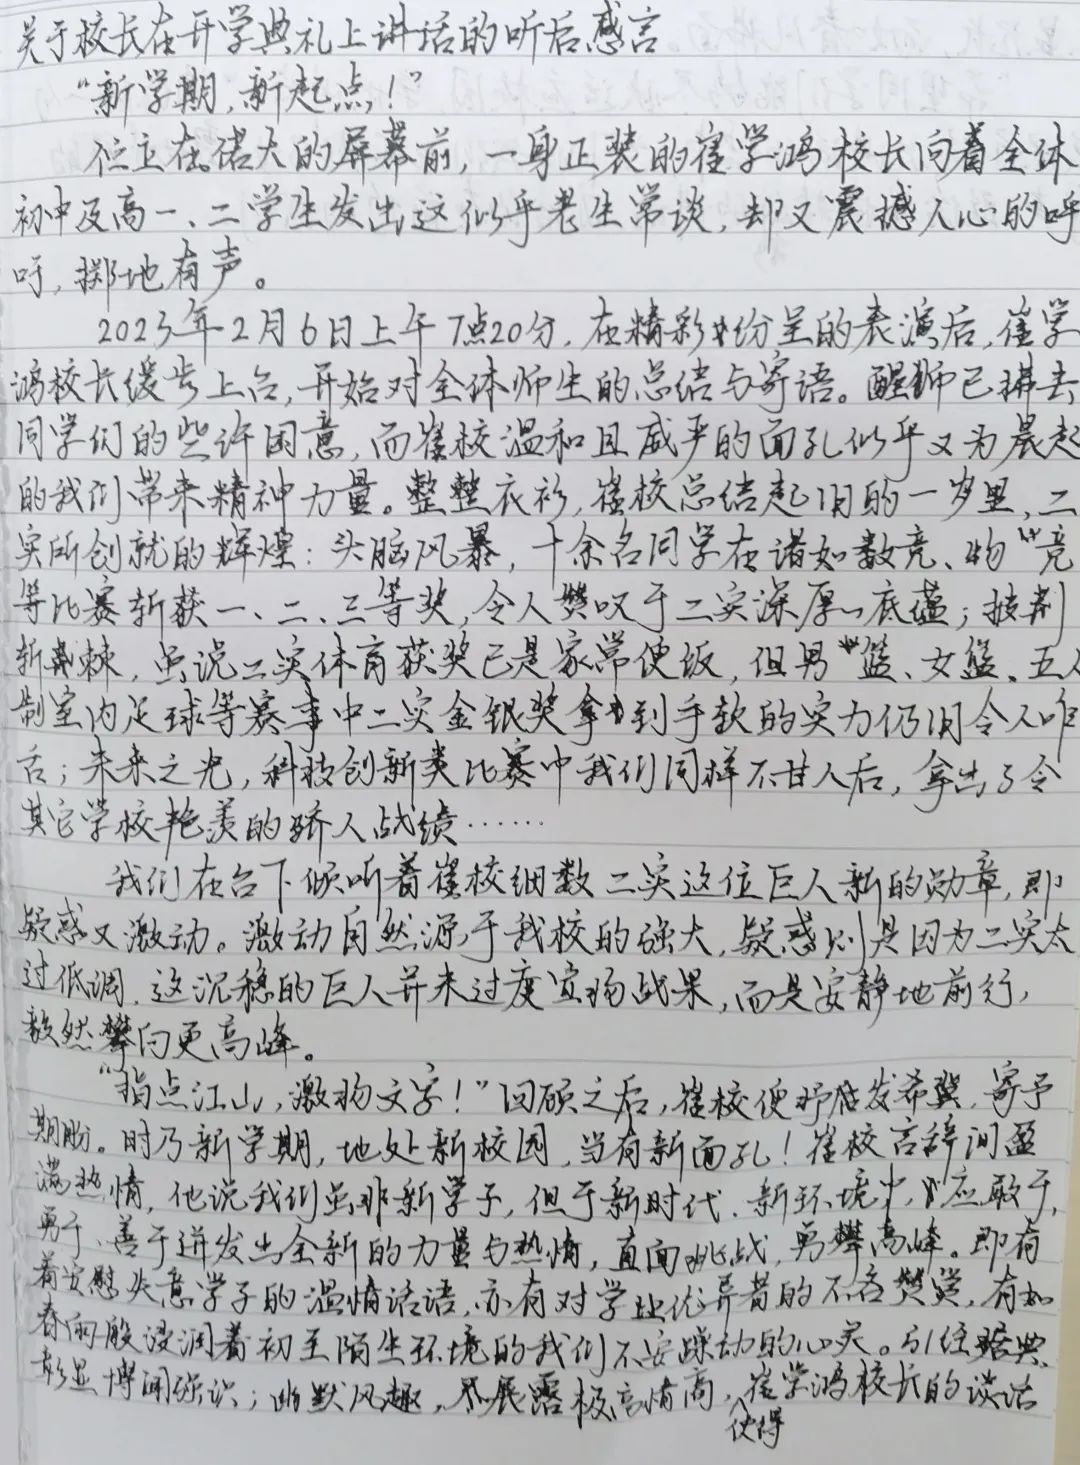 关于校长在开学典礼上讲话的听后感言
“新学期,新起点!”
伫立在偌大的屏幕前,一身正装的崔学鸿校长向着全体
初中及高一、二学生发出这似乎老生常谈,却又震撼人心的呼
吁,掷地有声。
2023年2月6日上午7点20分,在精彩纷呈的表演后,崔学
鸿校长缓步上台,开始对全体师生的总结与寄语。醒狮已拂去
同学们的些许困意,而崔校温和且威严的面孔似乎又为晨起
的我们带来精神力量。整整衣衫,崔校总结起旧的一岁里,二
实所创就的辉煌:头脑风暴,十余名同学在诸如数竞、物竞
等比赛斩获一、二、三等奖,令人赞叹于二实深厚底蕴;披荆
斩棘,虽说二实体育获奖已是家常便饭,但男篮、女篮、五人
制室内足球等赛事中二实金银奖拿到手软的实力仍旧令人咋
舌;未来之光,科技创新类比赛中我们同样不甘人后,拿出了令
其它学校艳羡的骄人战绩……
我们在台下倾听着崔校细数二实这位巨人新的勋章,即
疑惑又激动。激动自然源于我校的强大,疑惑则是因为二实太
过低调,这沉稳的巨人并未过度宣扬战果,而是安静地前行,
毅然攀向更高峰。
“指点江山,激扬文字!”回顾之后,崔校便抒发希冀,寄予
期盼。时乃新学期,地处新校园,当有新面孔!崔校言辞间盈
满热情,他说我们虽非新学子,但于新时代、新环境中,应敢于,
勇于、善于迸发出全新的力量与热情,直面挑战,勇攀高峰。即有
着安慰失意学子的温情话语,亦有对学业优异者的不吝赞赏,有如
春雨般浸润着初至陌生环境的我们不安躁动的心灵。引经据典,
彰显博闻强识;幽默风趣,展露极高情商,使得崔学鸿校长的谈话